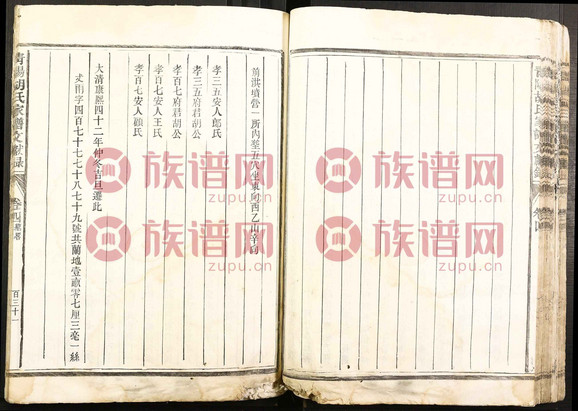 黃洪墳營一所內塟五穴坐東向西乙山辛向
孝三五安人郎氏
孝三五府君胡公
孝百七府君胡公
孝百七安人王氏
孝百七安人顧氏
大清康熙四十二年仲冬吉旦遷此
丈用字四百七十七七十八七十九號共蘭地壹畝零七厘三毫一絲
清陽胡氏家譜文獻錄
卷四 墓
百三十一
族谱网
zupu.cn
族谱网
zupu.cn
族谱网
zupu.cn
族谱网
zupu.cn